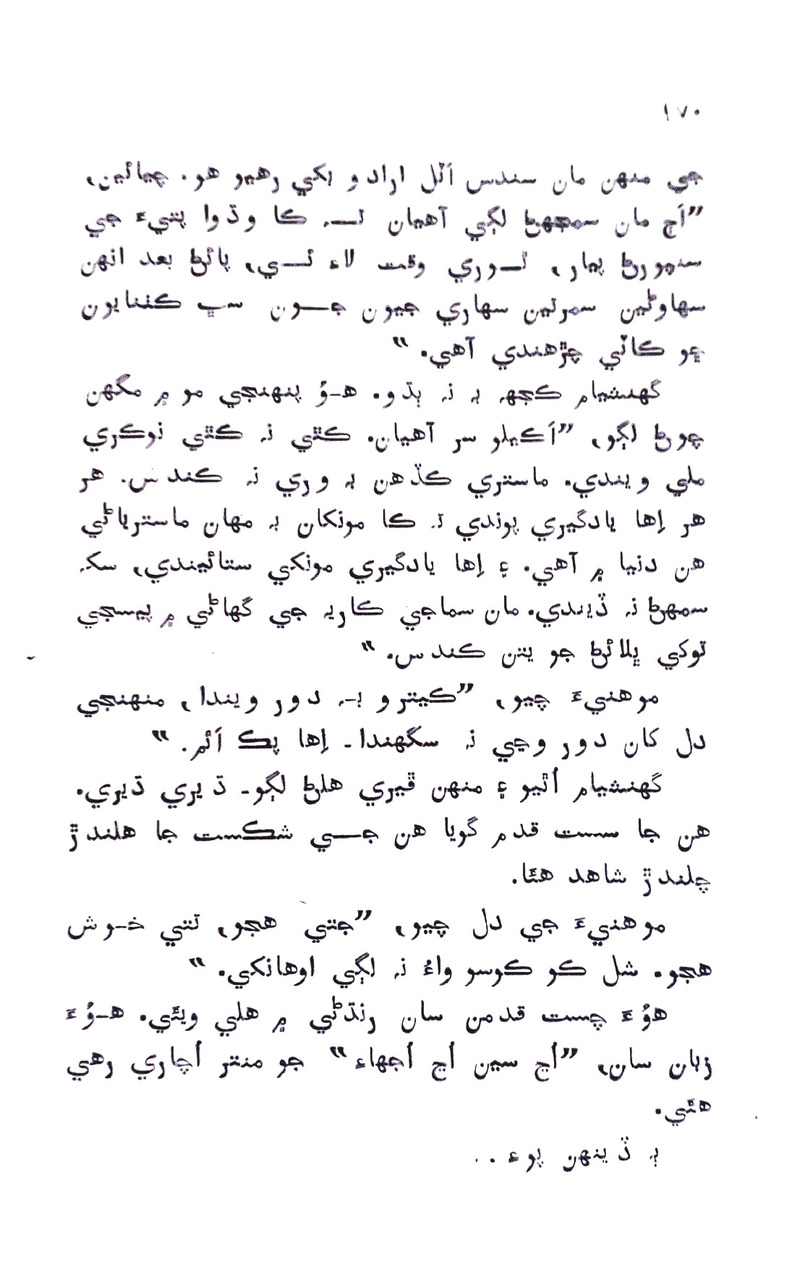 ١٧٠
جي منهن مان سندس اٽل ارادو بکي رهيو هو. چيائين،
”اڄ مان سمجهڻ لڳي آهيان تـ، ڪا وڌوا پتيءَ جي
سنمورڻ پيار، ٿـوري وقت لاءِ ئـي، پائڻ بعد انهن
سهاوڻين سمرتين سهاري جيون جـون سڀ ڪٺنايون
ڇو ڪاٽي ڇڙهندي آهي. “
گهنشيام ڪجهہ بہ نہ ٻڌو. هـوُ پنهنجي موھ ۾ مگهن
چوڻ لڳو، ”اڪيلو سر آهيان. ڪٿي نہ ڪٿي نوڪري
ملي ويندي. ماستري ڪڏهن بہ وري نہ ڪندس. هر
هر اِها يادگيري پوندي تہ ڪا مونکان بہ مهان ماسترياڻي
هن دنيا ۾ آهي. ۽ اِها يادگيري مونکي ستائيندي، سک
سمهڻ نہ ڏيندي. مان سماجي ڪاريہ جي گهاڻي ۾ پيسجي
توکي ڀلائڻ جو يتن ڪندس. “
موهنيءَ چيو، ”ڪيترو بـہ دور ويندا، منهنجي
دل کان دور وڃي نہ سگهندا۔ اِها پڪ اَٿم. “
گهنشيام اُٿيو ۽ منهن ڦيري هلڻ لڳو۔ ڌيري ڌيري.
هن جا سست قدم گويا هن جـي شڪست جا هلندڙ
چلندڙ شاهد هئا.
موهنيءَ جي دل چيو، ”جتي هجو، تتي خـوش
هجو. شل ڪو ڪوسو واءُ نہ لڳي اوهانکي. “
هوُءَ چست قدمن سان رنڌڻي ۾ هلي ويئي. هـوُءَ
زبان سان، ”اُڄ سين اُڄ اُجهاءِ“ جو منتر اُچاري رهي
هئي.
ٻہ ڏينهن پوءِ ..